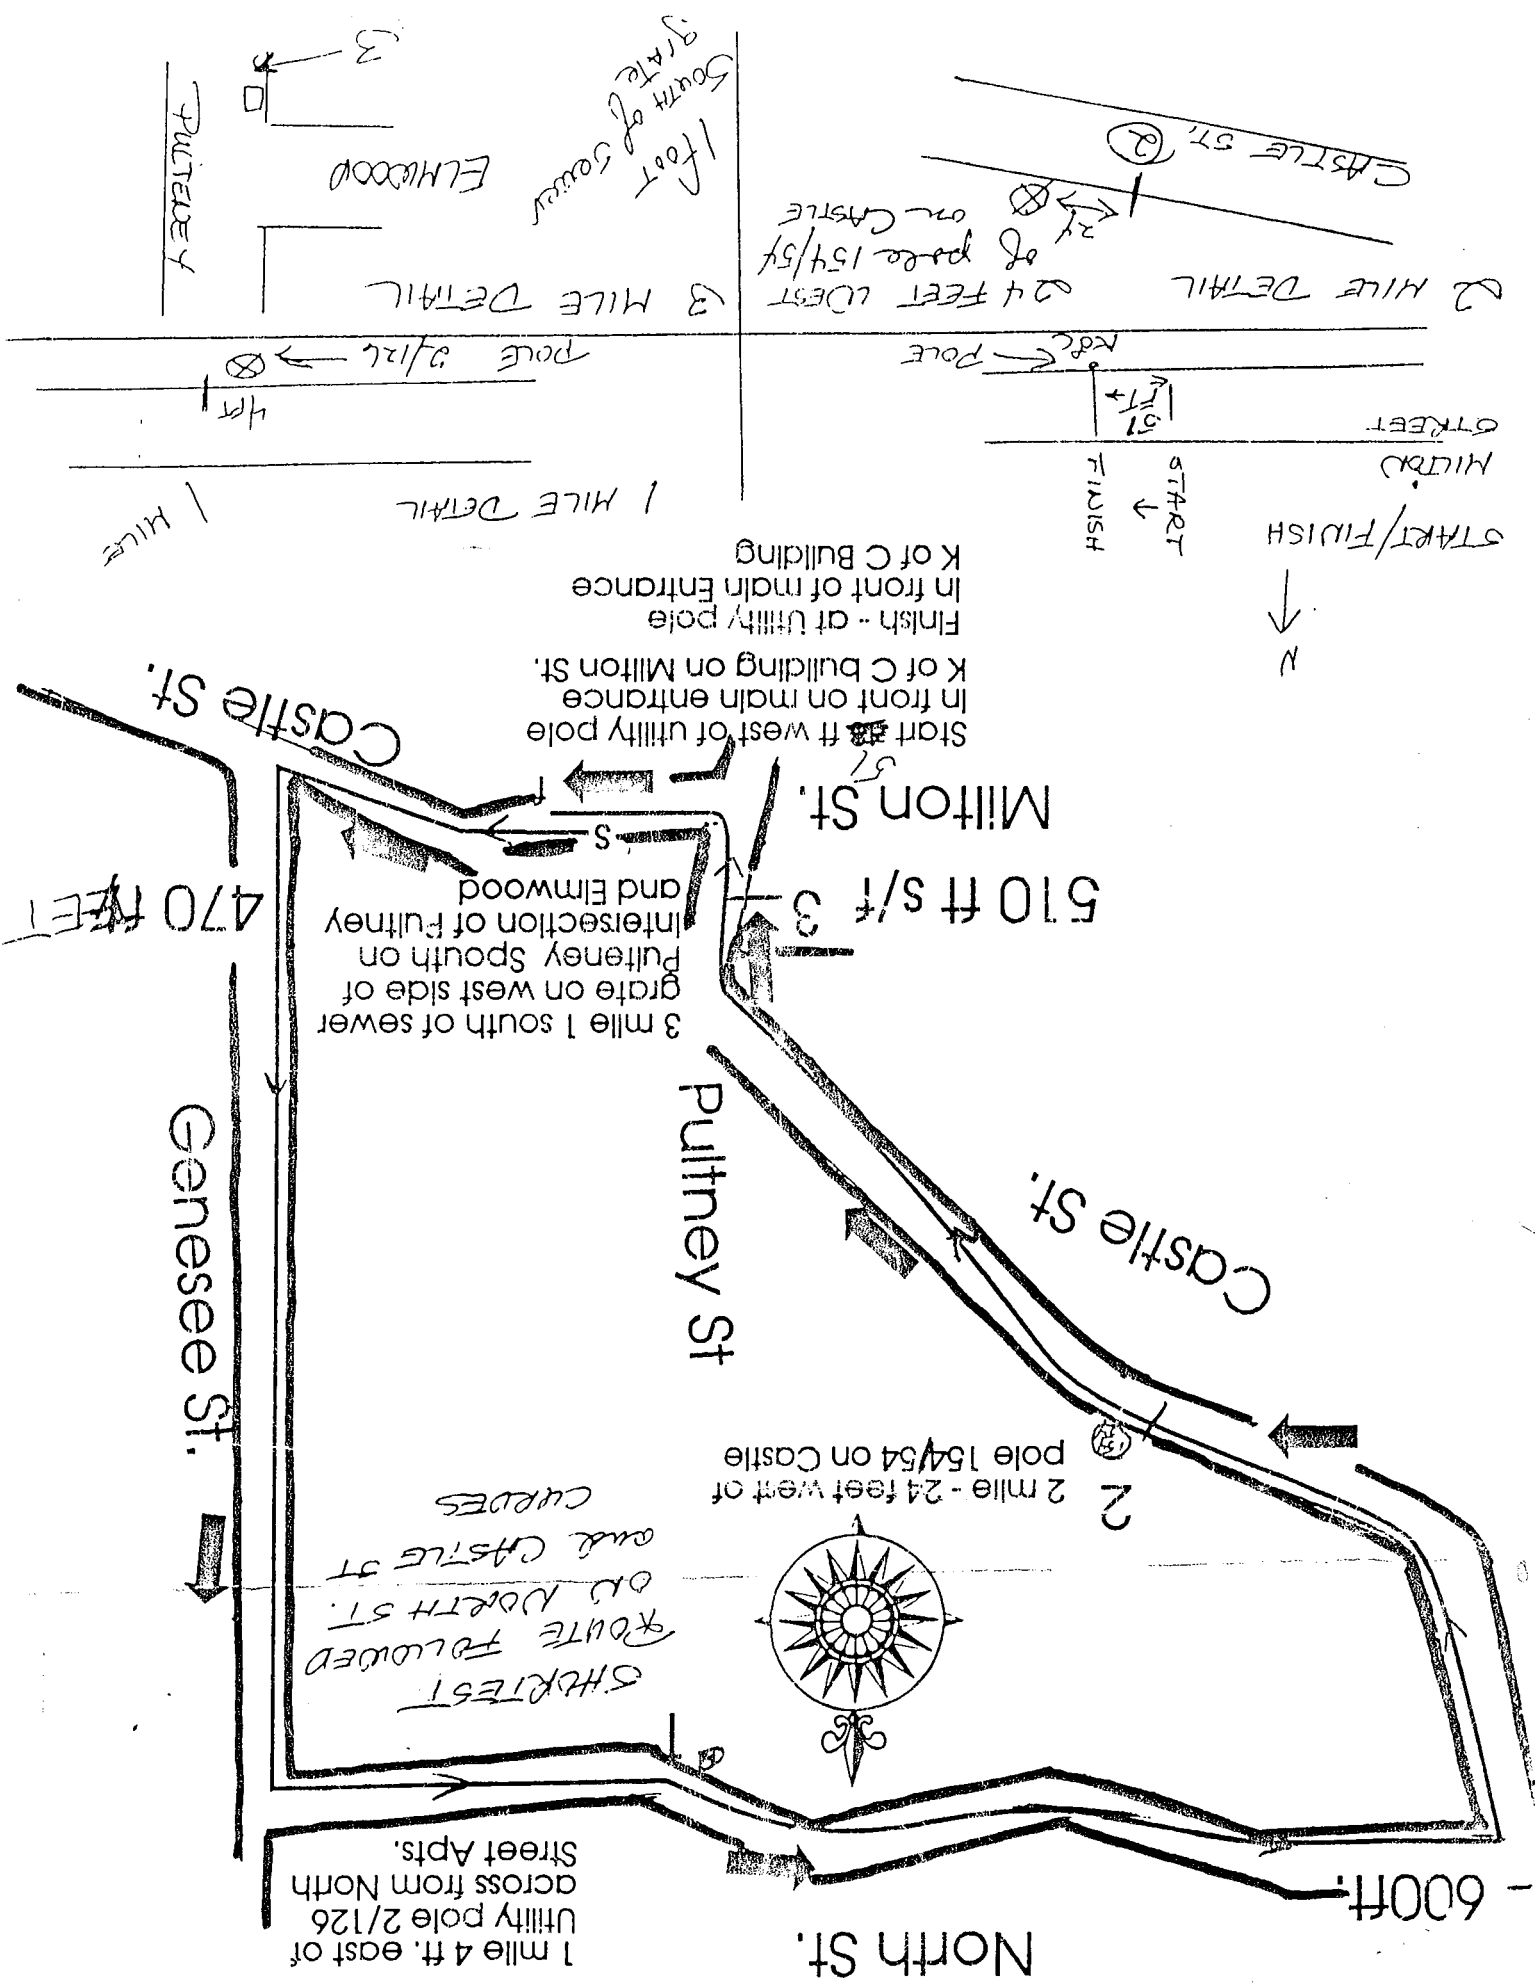 North St.
- 600ft.
1 mile 4 ft. east of
Utility pole 2/126
across from North
Street Apts.
SHORTEST
ROUTE FOLLOWED
ON NORTH ST.
and CASTLE ST
CURVES
2
2 mile - 24 feet west of
pole 154/54 on Castle
Genesee St.
Castle St.
Pultney St
3 mile 1 south of sewer
grate on west side of
Pulteney Spouth on
Intersection of Pultney
and Elmwood
470 FEET
510 ft s/f
3
S
f
Milton St.
Castle St.
51
Start ft west of utility pole
In front on main entrance
K of C building on Milton St.
Finish - at Utility pole
In front of main Entrance
K of C Building
N
START/FINISH
MILTON
STREET
START
FINISH
51
FT
K of C
POLE
1 MILE DETAIL
1 MILE
4 FT
POLE 2/126
2 MILE DETAIL
24 FEET WEST
of pole 154/54
on CASTLE
24
2
CASTLE ST.
3 MILE DETAIL
ELMWOOD
PULTENEY
1 foot
South of sewer
grate
3